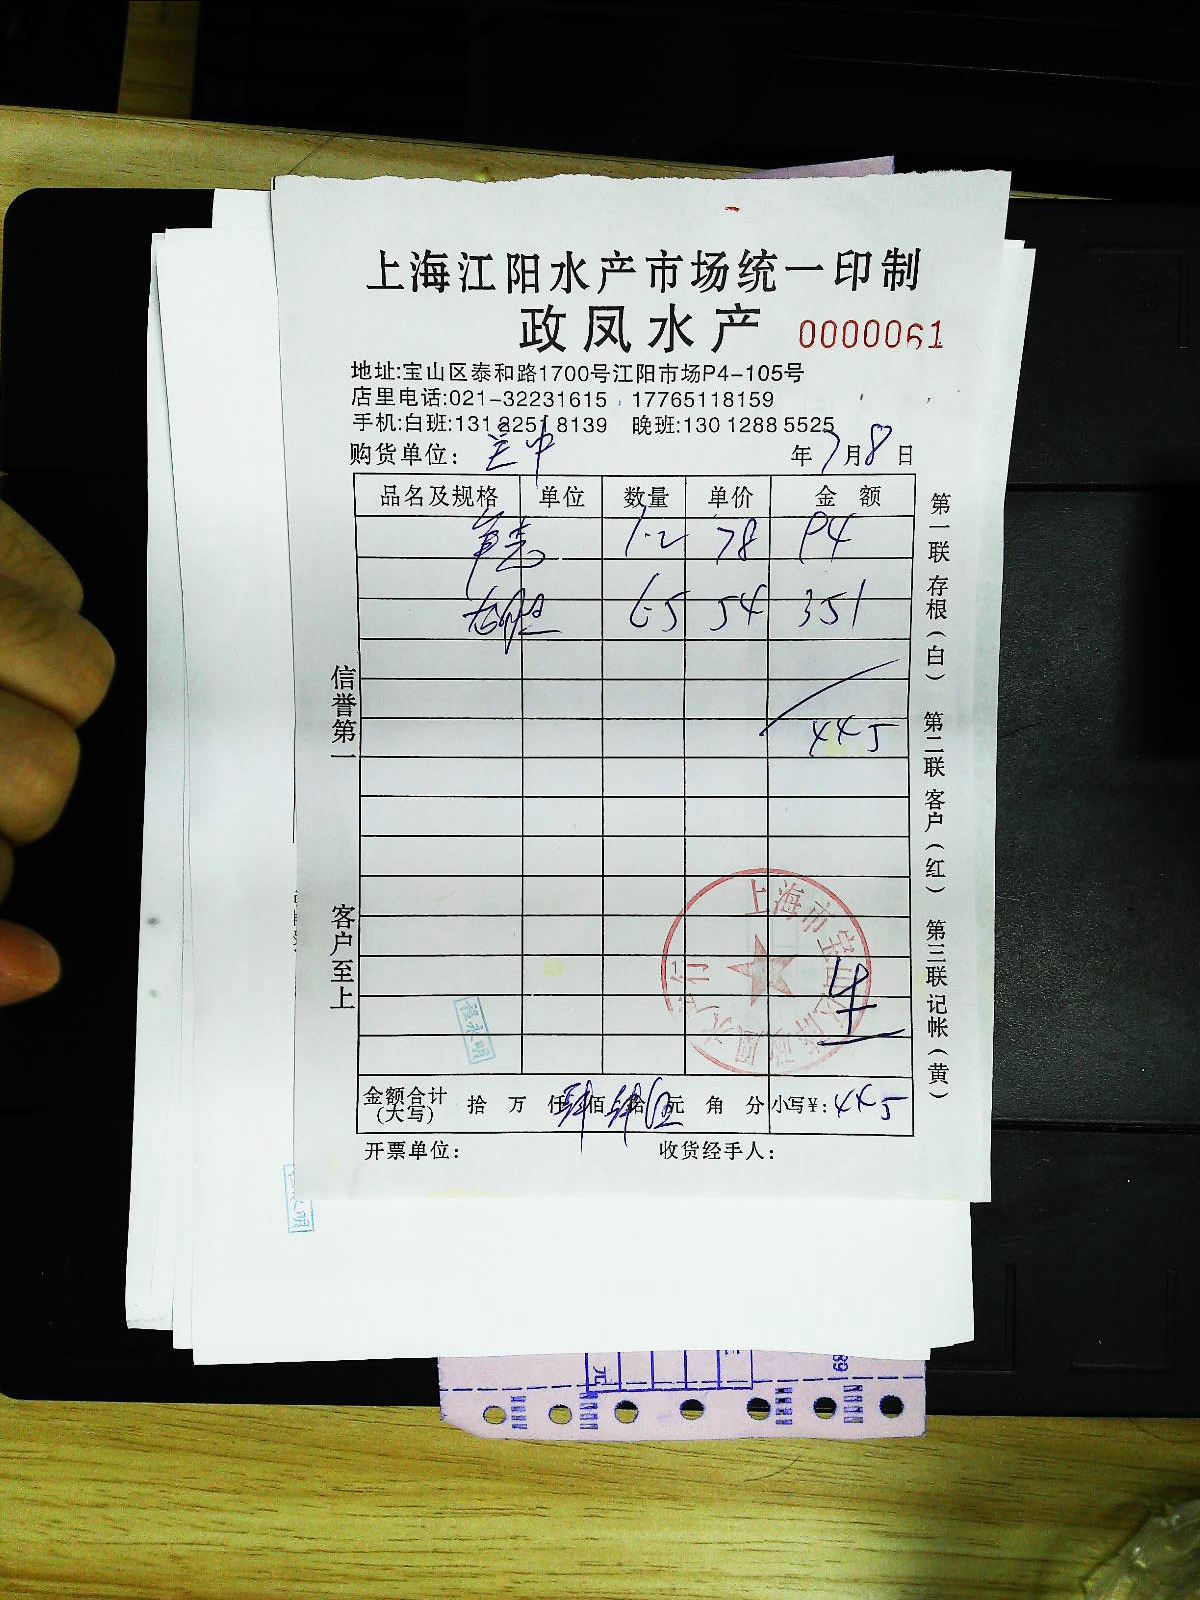 上海江阳水产市场统一印制
政凤水产 0000061
地址:宝山区泰和路1700号江阳市场P4-105号
店里电话:021-32231615 17765118159
手机:白班:131 2251 8139 晚班:130 1288 5525
购货单位: 年7月8日
品名及规格 单位 数量 单价 金 额
1.2 78 94
6.5 54 351
445
金额合计(大写) 拾 万 仟肆佰肆拾伍元 角 分 小写¥: 445
开票单位: 收货经手人:
信誉第一
客户至上
第一联存根(白) 第二联客户(红) 第三联记帐(黄)
上海市宝山区
水产行
元
89